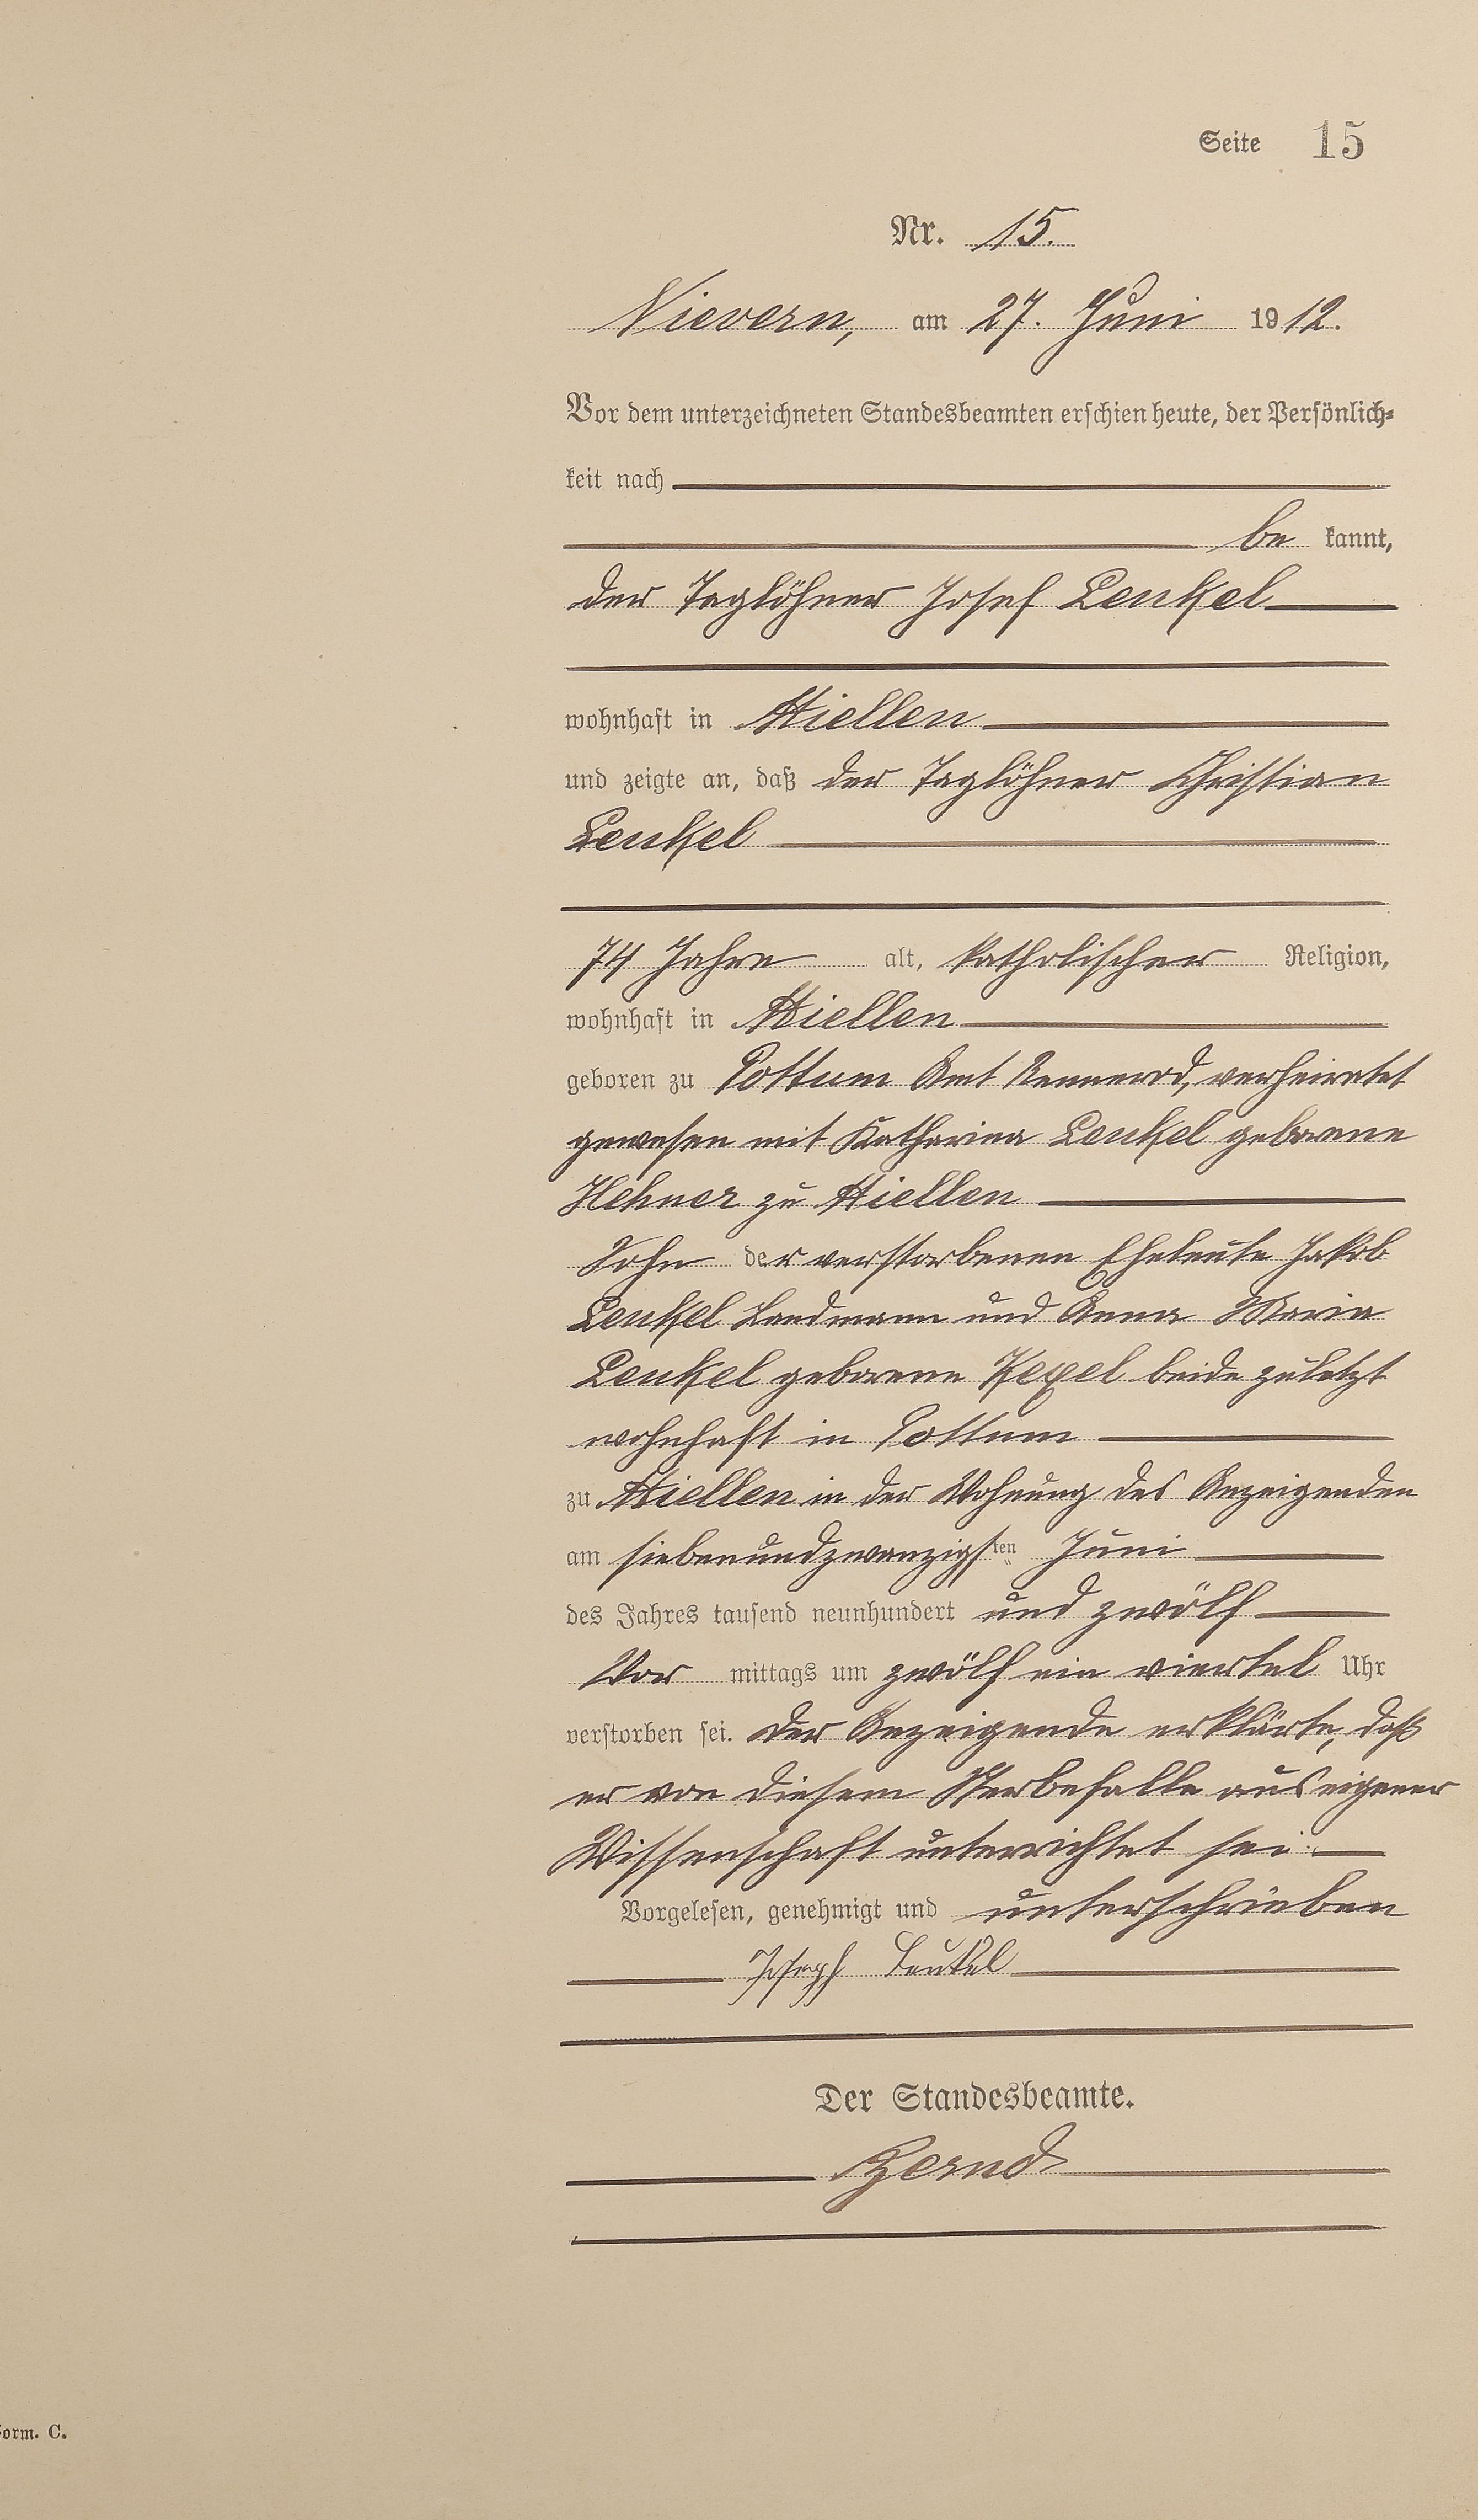 Seite 15
Nr. 15.
Nievern, am 27. Juni 1912.
Vor dem unterzeichneten Standesbeamten erschien heute, der Persönlich-
keit nach
be kannt,
der Taglöhner Josef Leukel
wohnhaft in Miellen
und zeigte an, daß der Taglöhner Christian
Leukel
74 Jahre alt, katholischer Religion,
wohnhaft in Miellen
geboren zu Pottum Amt Rennerod, verheiratet
gewesen mit Katharina Leukel geborene
Hehner zu Miellen
Sohn der verstorbenen Eheleute Jakob
Leukel Landmann und Anna Maria
Leukel geborene Kexel beide zuletzt
wohnhaft in Pottum
zu Miellen in der Wohnung des Anzeigenden
am siebenundzwanzigsten Juni
des Jahres tausend neunhundert und zwölf
Vor mittags um zwölf ein viertel Uhr
verstorben sei. Der Anzeigende erklärte, daß
er von diesem Sterbefalle aus eigener
Wissenschaft unterrichtet sei.
Vorgelesen, genehmigt und unterschrieben
Joseph Leukel
Der Standesbeamte.
orm. C.